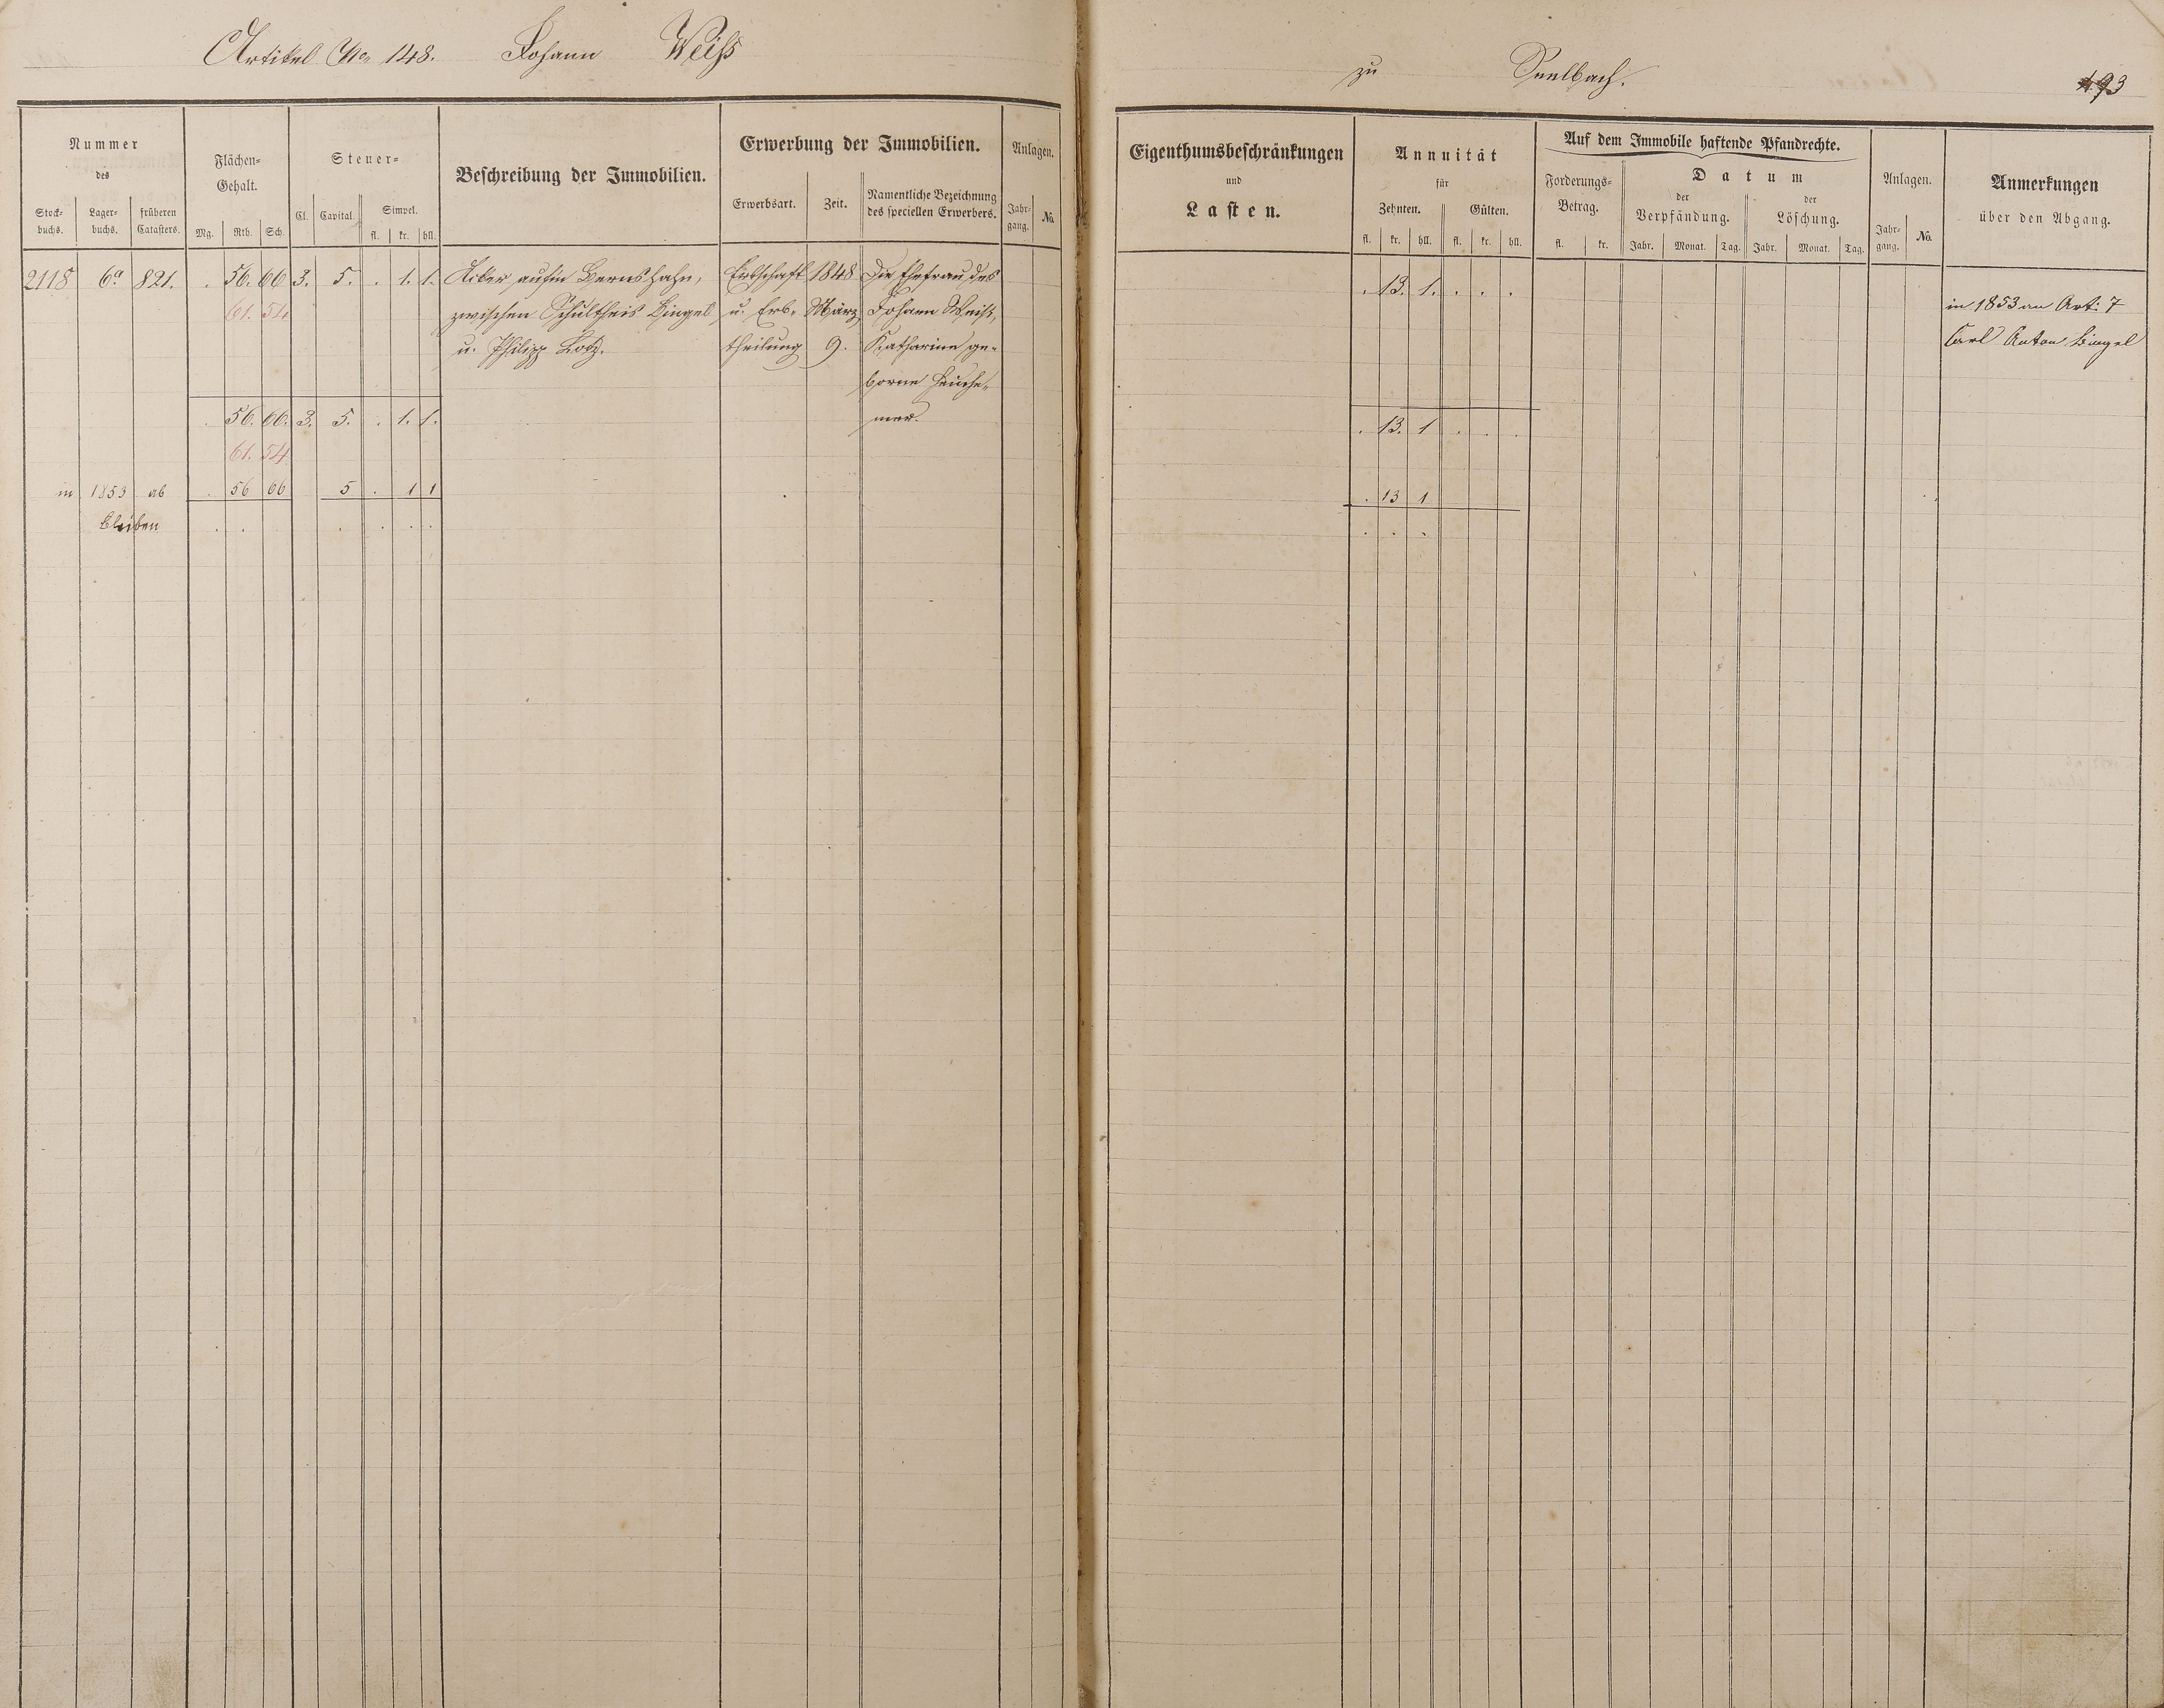 Artikel No 148. Johann Weiß
zu Seelbach.
193
Nummer
des
Stock-
buchs.
Lager-
buchs.
früheren
Catasters.
Flächen-
Gehalt.
Mg. Rth. Sch.
Steuer-
Cl. Capital. Simpel.
fl. kr. hll.
Beschreibung der Immobilien.
Erwerbung der Immobilien.
Erwerbsart. Zeit.
Namentliche Bezeichnung
des speciellen Erwerbers.
Anlagen.
Jahr-
gang.
No.
Eigenthumsbeschränkungen
und
Lasten.
Annuität
für
Zehnten. Gülten.
fl. kr. hll. fl. kr. hll.
Auf dem Immobile haftende Pfandrechte.
Forderungs-
Betrag.
fl. kr.
Datum
der
Verpfändung.
Jahr. Monat. Tag.
der
Löschung.
Jahr. Monat. Tag.
Anlagen.
Jahr-
gang.
No.
Anmerkungen
über den Abgang.
2118 6a 821. . 56. 66 3. 5. . 1. 1. Acker aufm Bernshahn, Erbschaft 1848 Die Ehefrau des
61. 54 zwischen Schultheis Bingel u. Erb- März Johann Weiß,
u. Philipp Lotz. theilung 9. Katharine ge-
borne Heuche-
mer.
. 13. 1. . . .
in 1853 an Art. 7
Carl Anton Bingel
. 56. 66. 3. 5. . 1. 1.
. 13. 1 . . .
61. 54
in 1853 ab . 56 66 5 . 1 1
. 13 1
bleiben . . . . . .
. . .